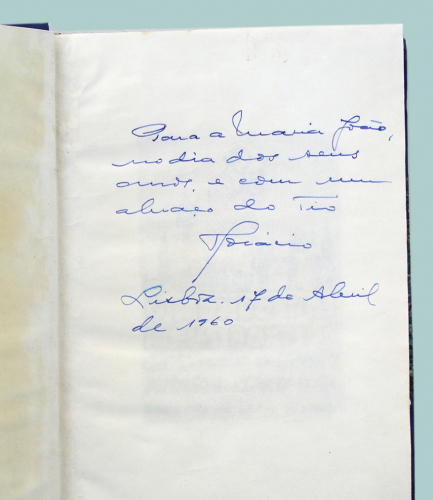 Para a Maria João,
no dia dos seus
anos, e com um
abraço do Tio
Horácio
Lisboa, 17 de Abril
de 1960